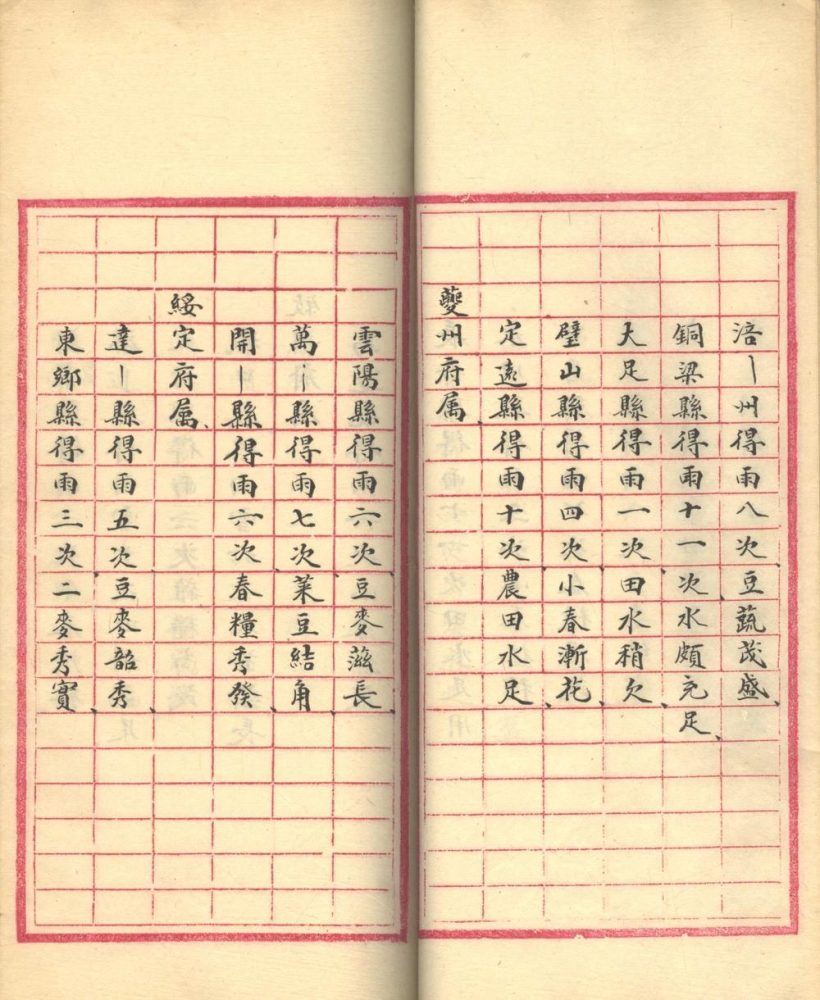 涪丨州得雨八次、豆蔬茂盛、
銅梁縣得雨十一次、水頗充足、
大足縣得雨一次、田水稍欠、
璧山縣得雨四次、小春漸花、
定遠縣得雨十次、農田水足、
夔州府属、
雲陽縣得雨六次、豆麥滋長、
萬丨縣得雨七次、菜豆結角、
開丨縣得雨六次、春糧秀發、
綏定府属、
達丨縣得雨五次、豆麥韶秀、
東鄉縣得雨三次、二麥秀實、